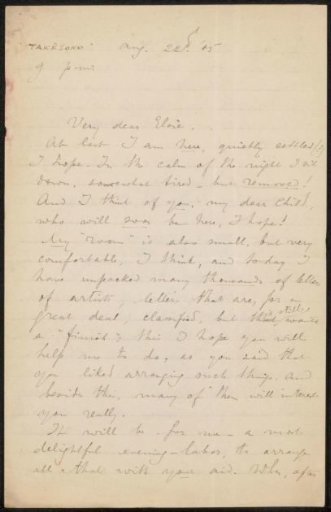 TAKESONO Aug. 22d '05
9 p.m.
Very dear Elsie.
At last I am here, quietly settled
I hope. In the calm of the night I sit
down, somewhat tired - but removed!
And I think of you, my dear child,
who will soon be here, I hope!
My "room" is also small, but very
comfortable, I think, and today I
have unpacked many thousands of letters
of artists, letters that are, for a
great deal, classified, but that still wants
a "finish"; this I hope you will
help me to do, as you said that
you liked arranging such things. And
beside this, many of them will interest
you really.
It will be - for me - a most
delightful evening-labor, to arrange
all that with your aid. When, after